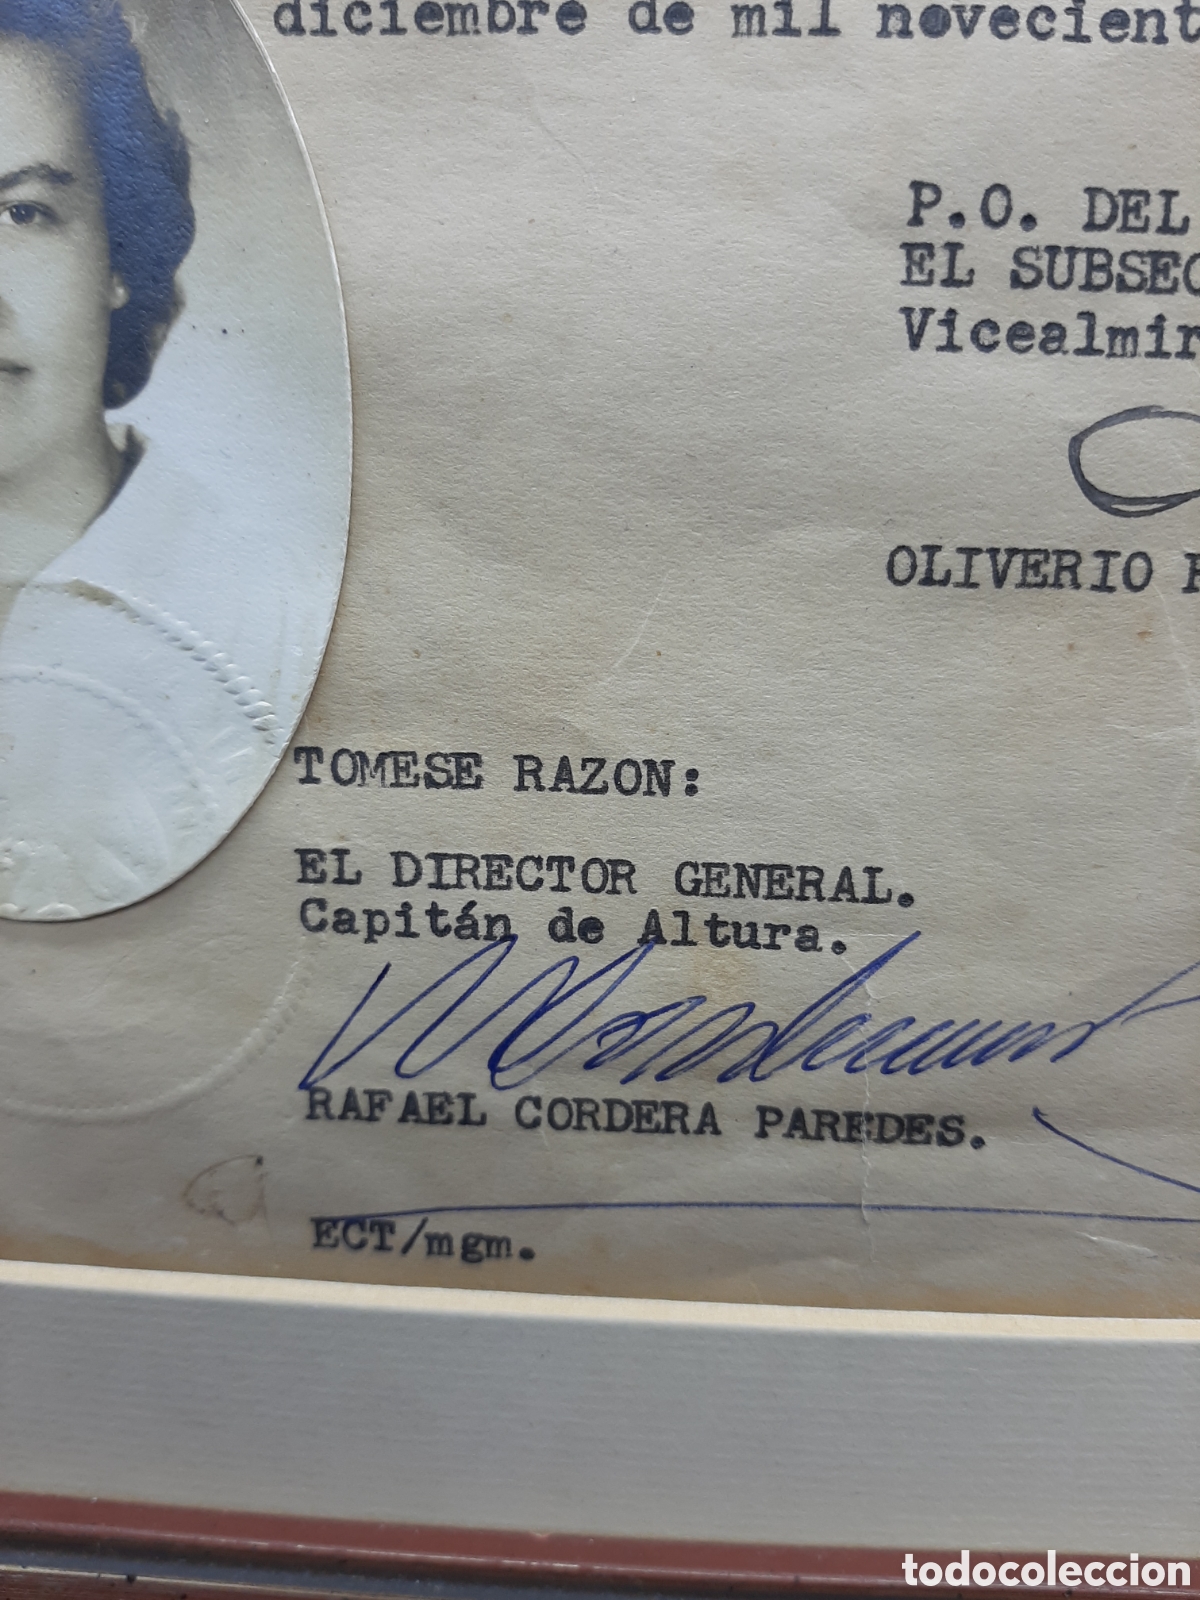 diciembre de mil novecient
P.O. DEL
EL SUBSEC
Vicealmir
OLIVERIO
TOMESE RAZON:
EL DIRECTOR GENERAL.
Capitán de Altura.
RAFAEL CORDERA PAREDES.
ECT/mgm.
todocoleccion